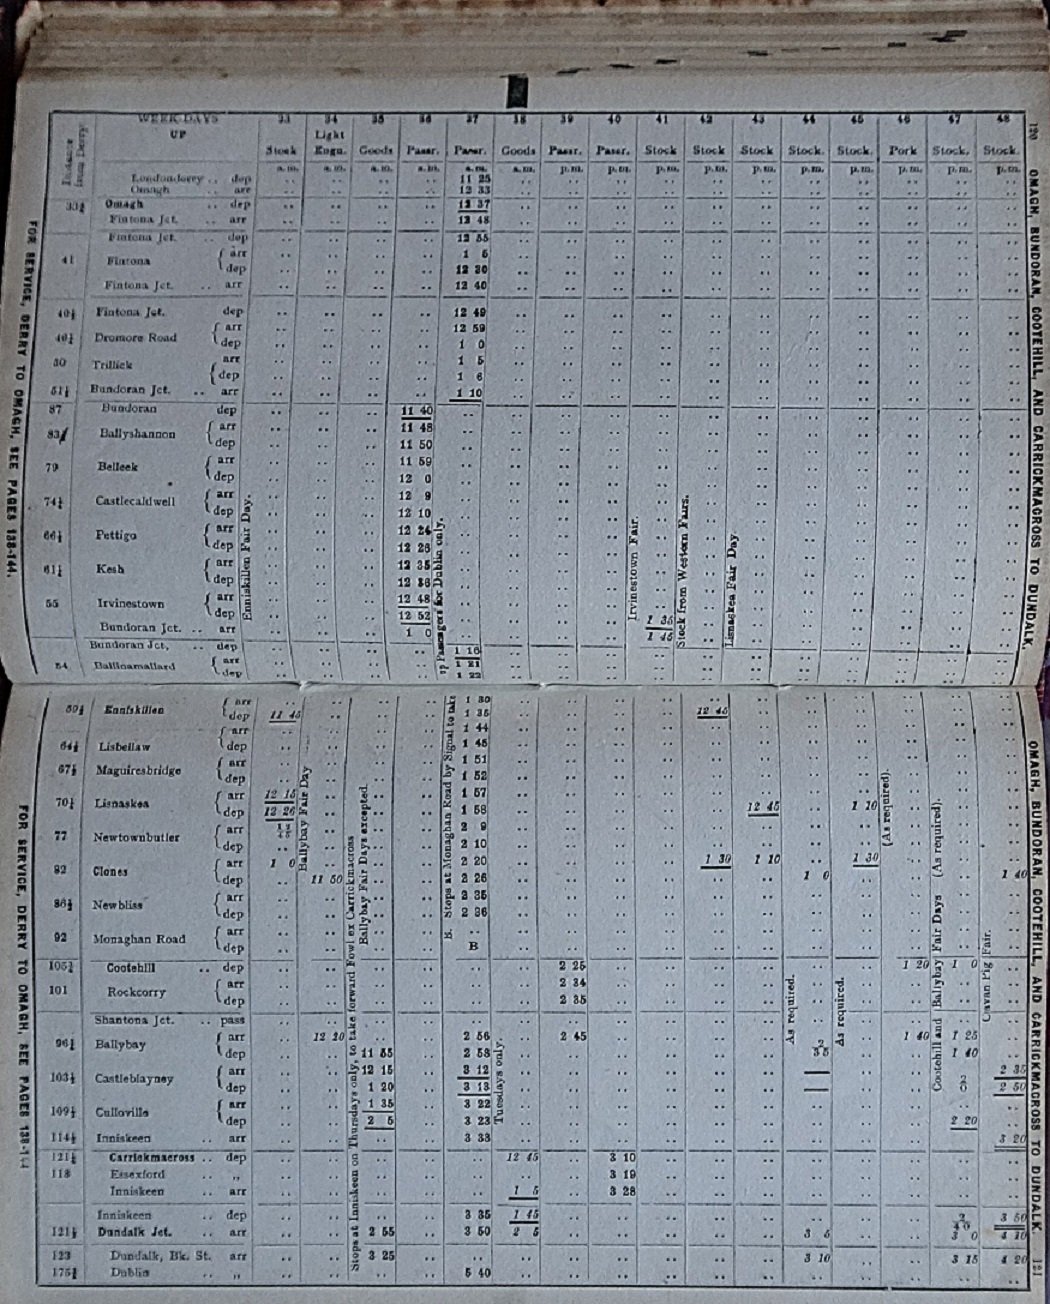 120 OMAGH, BUNDORAN, COOTEHILL, AND CARRICKMACROSS TO DUNDALK.
WEEK-DAYS 33 34 35 36 37 38 39 40 41 42 43 44 45 46 47 48
Distance from Derry UP Stock Light Engn. Goods Passr. Passr. Goods Passr. Passr. Stock Stock Stock Stock. Stock. Pork Stock. Stock.
a.m. a.m. a.m. a.m. a.m. a.m. p.m. p.m. p.m. p.m. p.m. p.m. p.m. p.m. p.m. p.m.
Londonderry .. dep 11 25
Omagh arr 12 33
33½ Omagh .. dep 12 37
Fintona Jct. .. arr 12 48
Fintona Jct. .. dep 12 55
41 Fintona arr 1 5
dep 12 30
Fintona Jct. .. arr 12 40
40½ Fintona Jct. dep 12 49
Dromore Road arr 12 59
dep 1 0
50 Trillick arr 1 5
dep 1 6
Bundoran Jct. .. arr 1 10
87 Bundoran dep 11 40
83 Ballyshannon arr 11 48
dep 11 50
79 Belleek arr 11 59
dep 12 0
74½ Castlecaldwell arr 12 9
dep 12 10
66½ Pettigo arr 12 24
dep 12 26
61½ Kesh arr 12 35
dep 12 36
55 Irvinestown arr 12 48
dep 12 52 1 35
Bundoran Jct. .. arr 1 0 1 45
Bundoran Jct. .. dep 1 16
54 Ballinamallard arr 1 21
dep 1 22
Enniskillen Fair Day.
up Passengers for Dublin only.
Irvinestown Fair.
Stock from Western Fairs.
Lisnaskea Fair Day.
FOR SERVICE, DERRY TO OMAGH, SEE PAGES 138-144.
OMAGH, BUNDORAN, COOTEHILL, AND CARRICKMACROSS TO DUNDALK. 121
Enniskillen arr 1 30
dep 11 45 1 35 12 45
Lisbellaw arr 1 44
64½ dep 1 45
67½ Maguiresbridge arr 1 51
dep 1 52
70½ Lisnaskea arr 12 15 1 57
dep 12 26 1 58 12 45 1 10
77 Newtownbutler arr 2 9
dep 2 10
82 Clones arr 1 0 2 20 1 30 1 10 1 30
dep 11 50 2 26 1 0 1 40
86½ Newbliss arr 2 35
dep 2 36
92 Monaghan Road arr
dep B
105¾ Cootehill .. dep 2 25 1 20 1 0
101 Rockcorry arr 2 34
dep 2 35
Shantona Jct. .. pass
96½ Ballybay arr 12 20 2 56 2 45 1 40 1 25
dep 11 55 2 58 1 40
103½ Castleblayney arr 12 15 3 12 2 35
dep 1 20 3 13 2 50
109½ Culloville arr 1 35 3 22
dep 2 5 3 23 2 20
114½ Inniskeen .. arr 3 33 3 20
121½ Carrickmacross .. dep 12 45 3 10
118 Essexford .. „ 3 19
Inniskeen .. arr 1 5 3 28
Inniskeen .. dep 3 35 1 45 3 50
121½ Dundalk Jct. .. arr 2 55 3 50 2 5 3 5 3 0 4 10
123 Dundalk, Bk. St. arr 3 25 3 10 3 15 4 20
175¾ Dublin .. „ 5 40
Ballybay Fair Day
Stops at Inniskeen on Thursdays only, to take forward Fowl ex Carrickmacross
Ballybay Fair Days excepted.
B. Stops at Monaghan Road by Signal to take
Tuesdays only.
As required.
As required.
(As required).
Cootehill and Ballybay Fair Days (As required).
Cavan Pig Fair.
FOR SERVICE, DERRY TO OMAGH, SEE PAGES 138-144